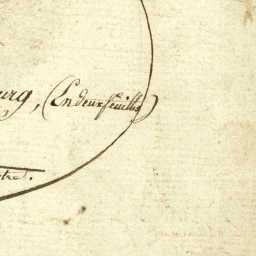 urg, (En deux feuilles)